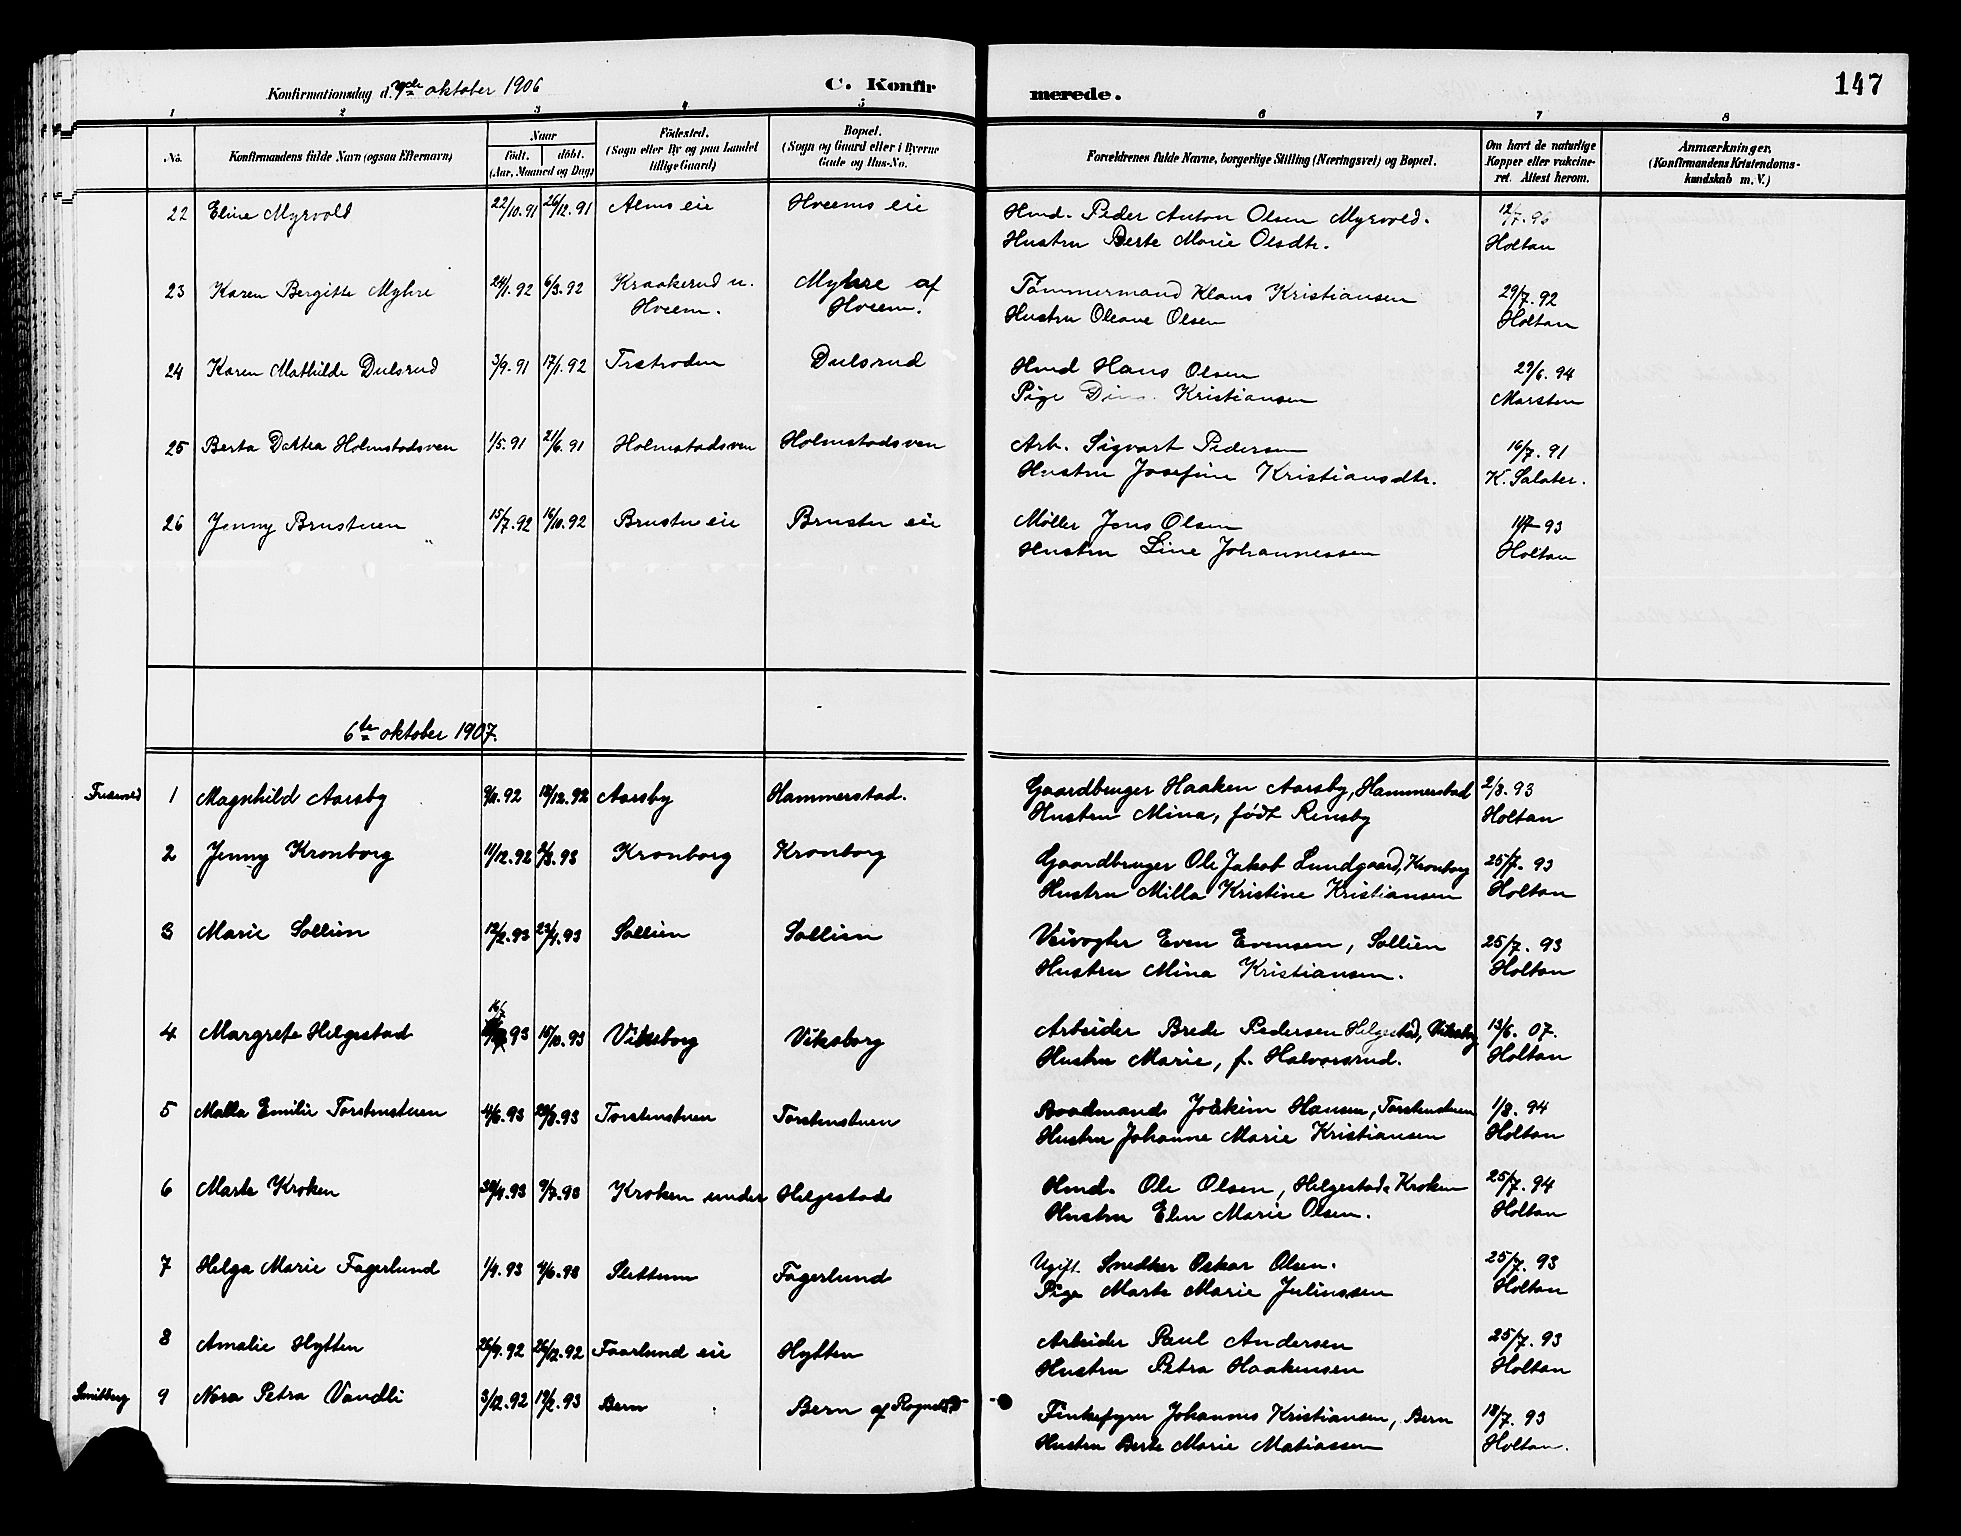 147
Konfirmationsdag d. 7de oktober 1906 C. Konfirmerede.
1 2 3 4 5 6 7 8
No. Konfirmandens fulde Navn (ogsaa Efternavn) Naar født. døbt. (Aar, Maaned og Dag) Fødested. (Sogn eller By og paa Landet tillige Gaard) Bopæl. (Sogn og Gaard eller i Byerne Gade og Hus-No. Forældrenes fulde Navne, borgerlige Stilling (Næringsvei) og Bopæl. Om havt de naturlige Kopper eller vakcineret. Attest herom. Anmærkninger, (Konfirmandens Kristendomskundskab m. V.)
22 Eline Myrvold 22/10.91 26/12.91 Alms eie Hveems eie Hmd. Peder Anton Olsen Myrvold. 12/7.96
Hustru Berte Marie Olsdtr. Holtan
23 Karen Bergitte Myhre 24/1.92 6/3.92 Kraakerud u. Myhre af Tømmermand Klaus Kristiansen 29/7.92
Hveem. Hveem. Hustru Oleave Olsen Holtan
24 Karen Mathilde Dulsrud 3/9.91 17/1.92 Trstroden Dulsrud Hmd Hans Olsen 29/6.94
Pige Kristiansen Marsten
25 Berta Dortea Holmstadsven 1/5.91 21/6.91 Holmstadsven Holmstadsven Arb. Sigvart Pedersen 16/7.91
Hustru Josefine Kristiansdtr. K.
26 Jenny Brustuen 15/7.92 16/10.92 Brustu eie Brustu eie Møller Jens Olsen 93
Hustru Line Johannessen Holtan
6te oktober 1907.
1 Magnhild Aarsby 9/11.92 18/12.92 Aarsby Hammerstad. Gaardbruger Haaken Aarsby, Hammerstad 2/8.93
Hustru Mina, født Rensby Holtan
2 Jenny Kronborg 11/12.92 93 Kronborg Kronborg Gaardbruger Ole Jakob Lundgaard, Kronborg 25/7.93
Hustru Milla Kristine Kristiansen Holtan
3 Marie Sollien 12/2.93 23/4.93 Sollien Sollien Veivogter Even Evensen, Sollien 25/7.93
Hustru Mina Kristiansen. Holtan
16/
4 Margrete Helgestad 93 15/10.93 Viksborg Viksborg Arbeider Brede Pedersen Helgestad, Viksborg 13/6.07.
Hustru Marie, f. Halvorsrud. Holtan
5 Malla Emilie Torstenstuen 4/6.93 20/8.93 Torstenstuen Torstenstuen Baadmand Joakim Hansen, Torstenstuen 1/8.94
Hustru Johanne Marie Kristiansen Holtan
6 Marte Kroken 30/4.93 9/7.93 Kroken under Helgestad Hmd. Ole Olsen, Helgestads Kroken 25/7.94
Hustru Elen Marie Olsen. Holtan
7 Helga Marie Fagerlund 1/4.93 4/6.93 Slettum Fagerlund Ugift Snedker Oskar Olsen. 25/7.93
Pige Marte Marie Juliussen Holtan
8 Amalie Hytten 26/9.92 26/12.92 Faarlund eie Hytten Arbeider Paul Andersen 25/7.93
Hustru Petra Haakensen Holtan
Smitberg 9 Nora Petra Vandli 3/12.92 19/2.93 Bern Bern af Finkefyrer Johannes Kristiansen, Bern 18/7.93
Hustru Berte Marie Matiassen Holtan.